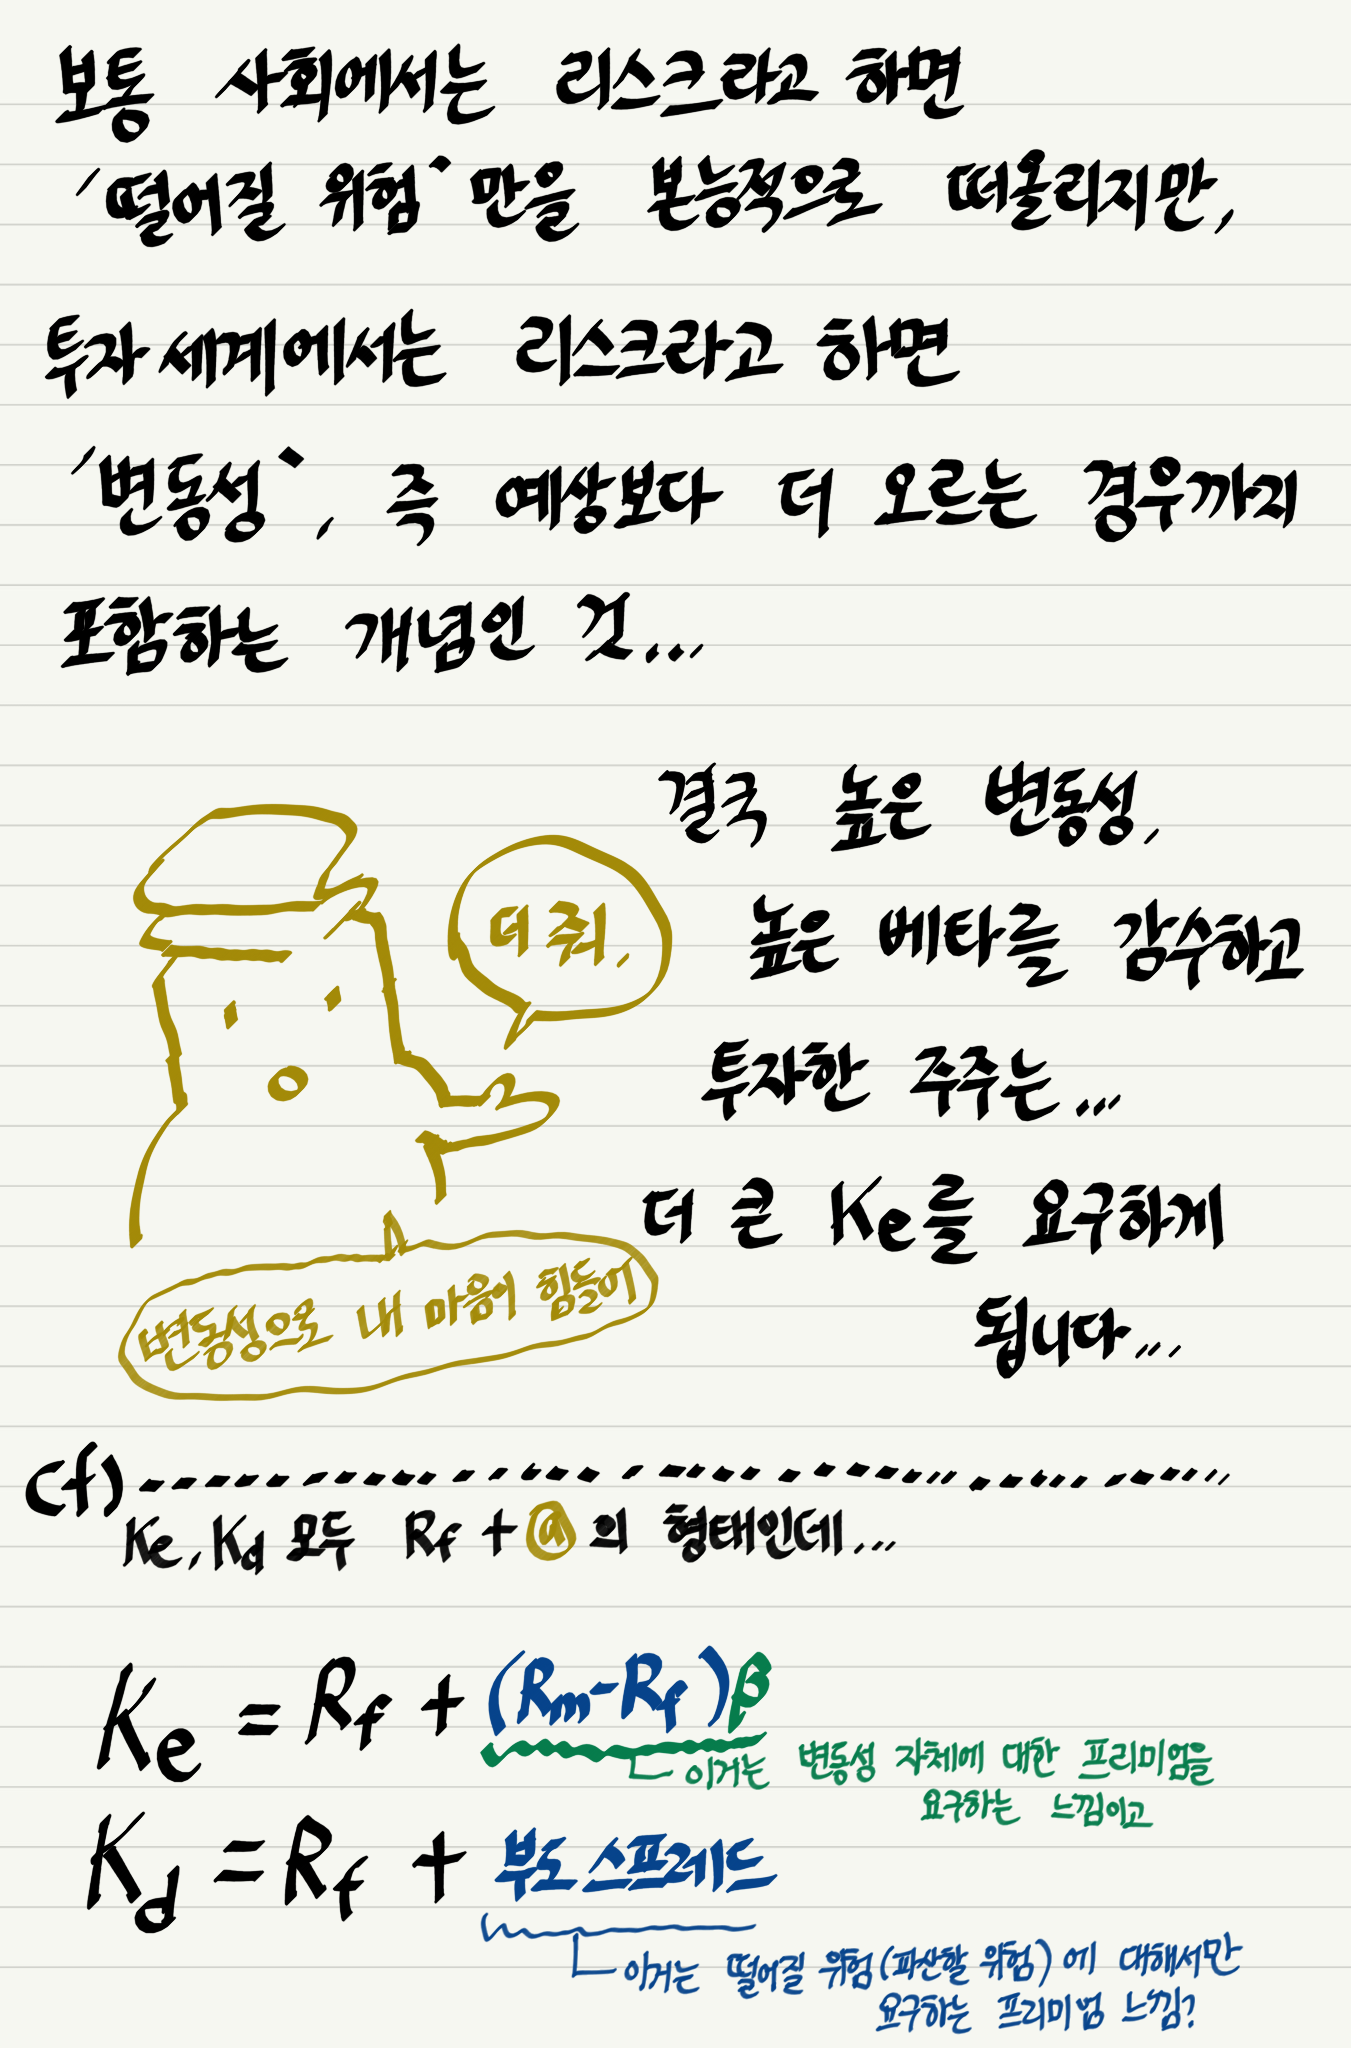 보통 사회에서는 리스크라고 하면
'떨어질 위험'만을 본능적으로 떠올리지만,
투자 세계에서는 리스크라고 하면
'변동성', 즉 예상보다 더 오르는 경우까지
포함하는 개념인 것...
결국 높은 변동성,
높은 베타를 감수하고
투자한 주주는...
더 큰 Ke를 요구하게
됩니다...
더 줘.
변동성으로 내 마음이 힘들어
cf)
Ke, Kd 모두 Rf + @의 형태인데...
Ke = Rf + (Rm-Rf)β
이거는 변동성 자체에 대한 프리미엄을
요구하는 느낌이고
Kd = Rf + 부도 스프레드
이거는 떨어질 위험(파산할 위험)에 대해서만
요구하는 프리미엄 느낌?